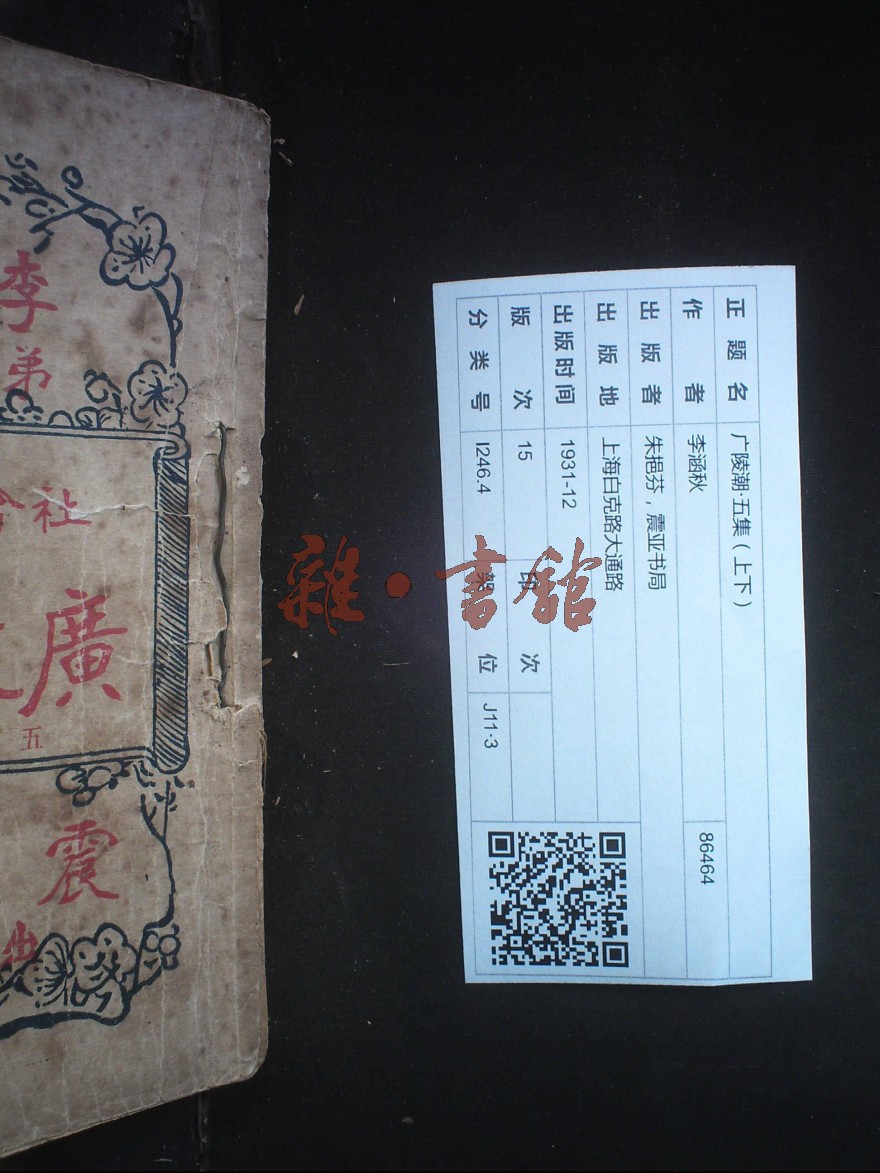 李
弟
社會
廣
五
震
正题名 广陵潮·五集(上下)
作者 李涵秋 86464
出版者 朱挹芬，震亚书局
出版地 上海白克路大通路
出版时间 1931-12
版次 15 印次
分类号 I246.4 架位 J11·3
雜·書館